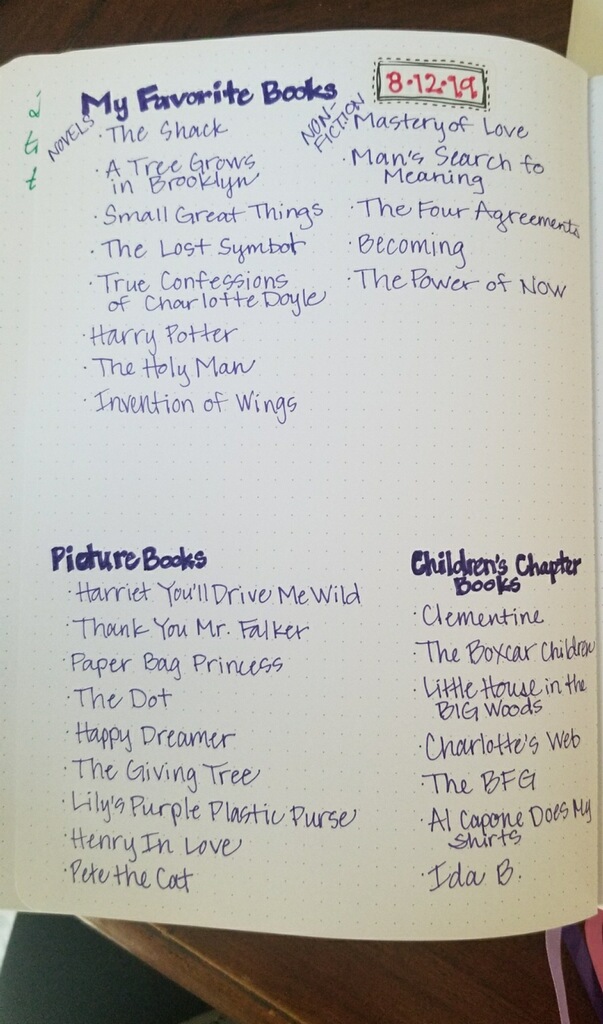 My Favorite Books
8.12.19
NOVELS
· The Shack
· A Tree Grows
in Brooklyn
· Small Great Things
· The Lost Symbol
· True Confessions
of Charlotte Doyle
· Harry Potter
· The Holy Man
· Invention of Wings
NON-
FICTION
· Mastery of Love
· Man's Search to
Meaning
· The Four Agreements
· Becoming
· The Power of Now
Picture Books
· Harriet You'll Drive Me Wild
· Thank You Mr. Falker
· Paper Bag Princess
· The Dot
· Happy Dreamer
· The Giving Tree
· Lily's Purple Plastic Purse
· Henry In Love
· Pete the Cat
Children's Chapter
Books
· Clementine
· The Boxcar Children
· Little House in the
BIG Woods
· Charlotte's Web
· The BFG
· Al Capone Does My
Shirts
· Ida B.